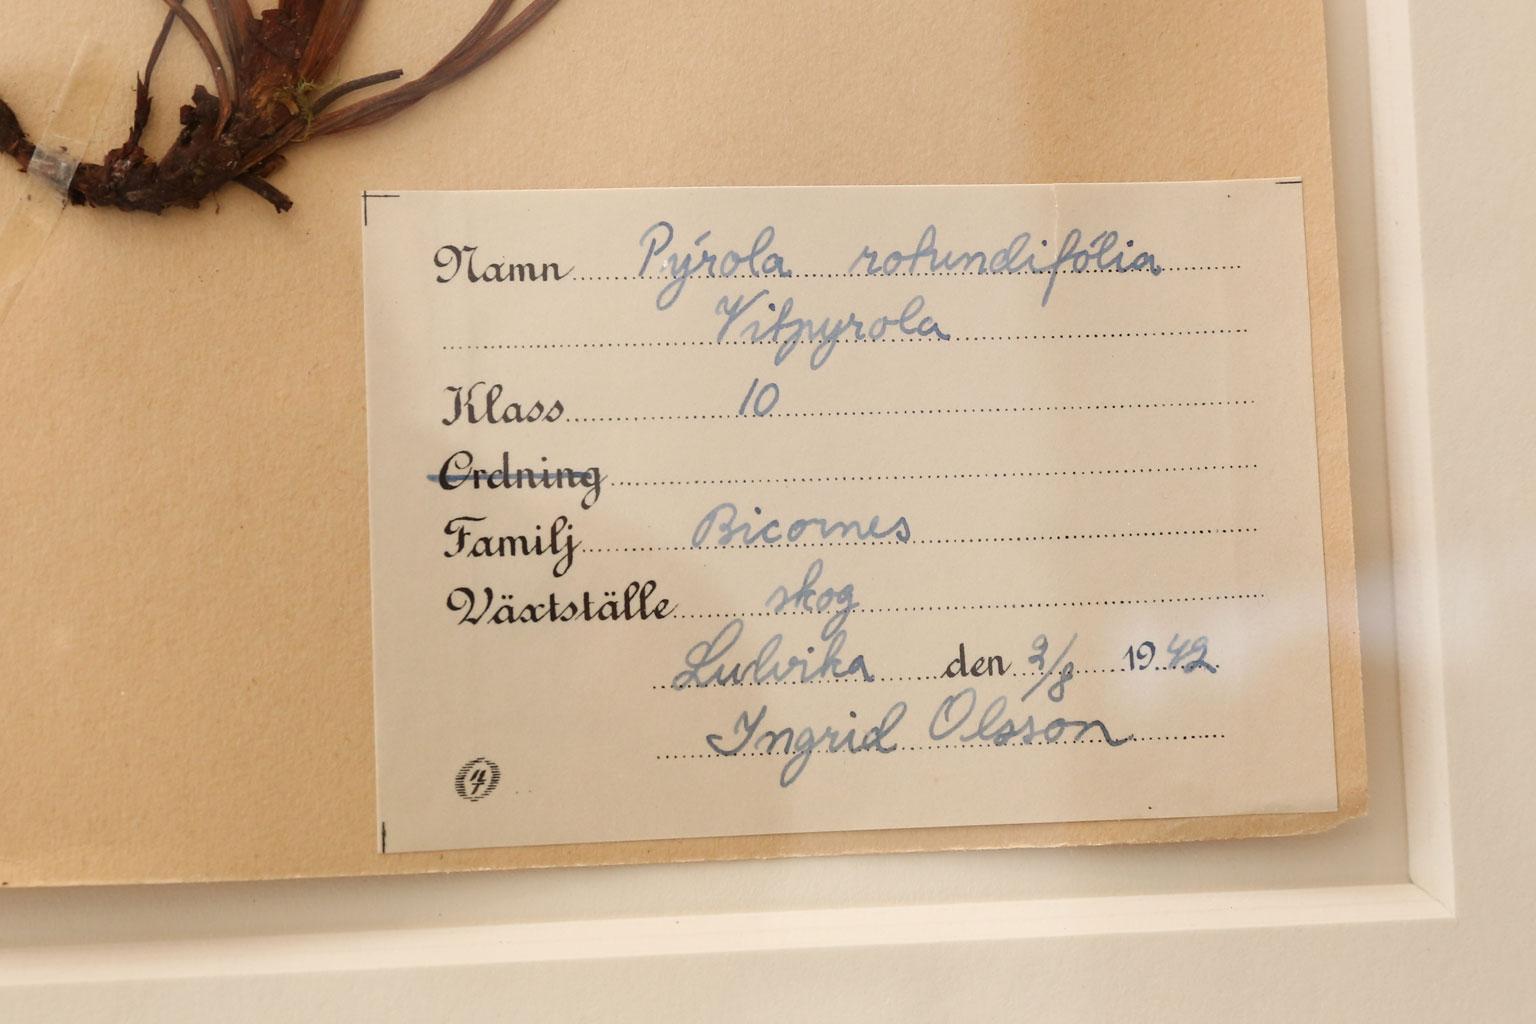 Namn Pýrola rotundifólia
Vitpyrola
Klass 10
Ordning
Familj Bicornes
Växtställe skog
Ludvika den 2/8 1942
Ingrid Olsson